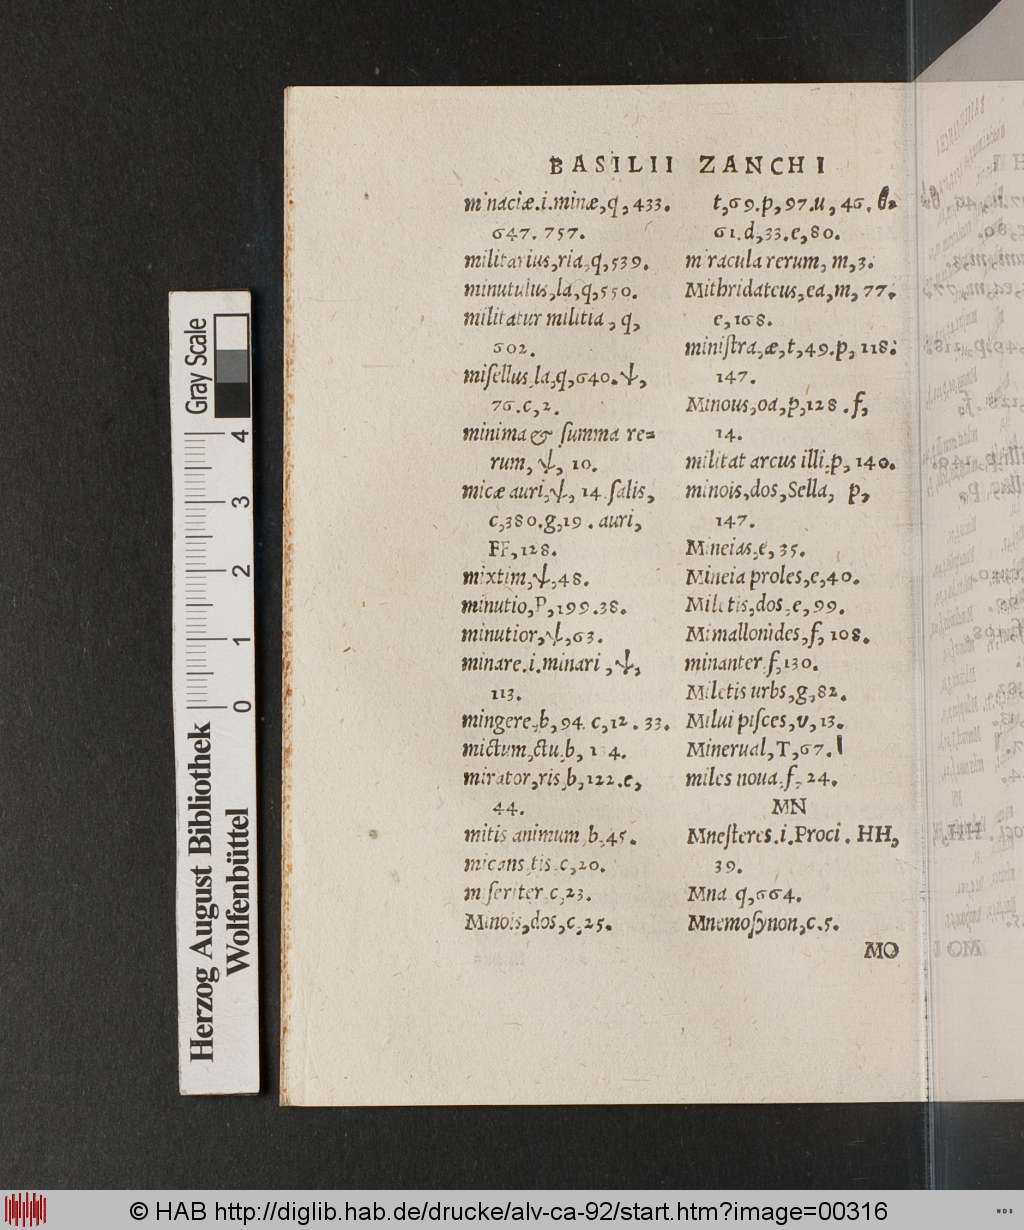 BASILII ZANCHI
minaciæ.i.minæ,q,433.
647.757.
militarius,ria,q,539.
minutulus,la,q,550.
militatur militia, q,
602.
miſellus,la,q,640.ψ,
76.c,2.
minima & ſumma re=
rum, ψ, 10.
micæ auri,ψ, 14.ſalis,
c,380.g,19. auri,
FF,128.
mixtim,ψ,48.
minutio,P,199.38.
minutior,ψ,63.
minare.i.minari, ψ,
113.
mingere,b,94. c,12. 33.
mictum,ctu,b, 134.
mirator,ris,b,122.e,
44.
mitis animum,b,45.
micans,tis,c,20.
miſeriter,c,23.
Minois,dos,c,25.
t,69.p,97.u, 46.
61.d,33.e,80.
miracula rerum, m,3.
Mithridateus,ea,m,77.
e,168.
miniſtra,æ,t,49.p,118.
147.
Minous,oa,p,128.f,
14.
militat arcus illi.p,140.
minois,dos,Sella, p,
147.
Mineias,e,35.
Mineia proles,e,40.
Miletis,dos,e,99.
Mimallonides,f,108.
minanter.f,130.
Miletis urbs,g,82.
Milui piſces,v,13.
Minerual,T,67.
miles noua.f, 24.
MN
Mneſteres.i.Proci. HH,
39.
Mna q,664.
Mnemoſynon,c.5.
MO
Gray Scale
0 1 2 3 4
Herzog August Bibliothek
Wolfenbüttel
© HAB http://diglib.hab.de/drucke/alv-ca-92/start.htm?image=00316